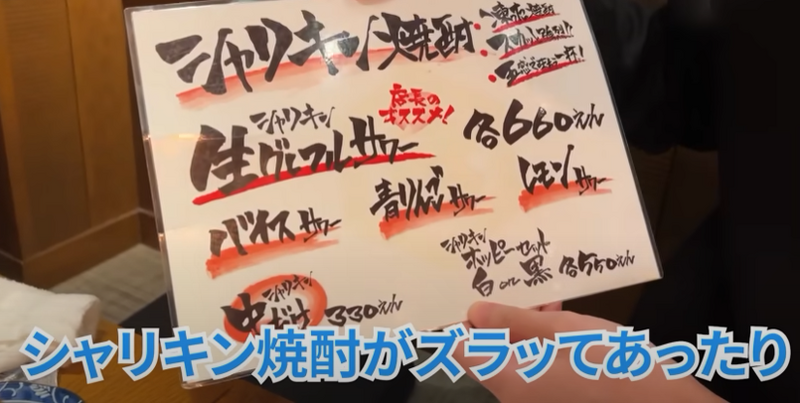 シャリキン焼酎
凍ホ焼酎
店長の
オススメ!
シャリキン
生グレフルサワー
各660えん
バイスサワー
青りんごサワー
レモンサワー
シャリキン
ホッピーセット
白or黒
各550えん
シャリキン
中だけ
330えん
シャリキン焼酎がズラッてあったり